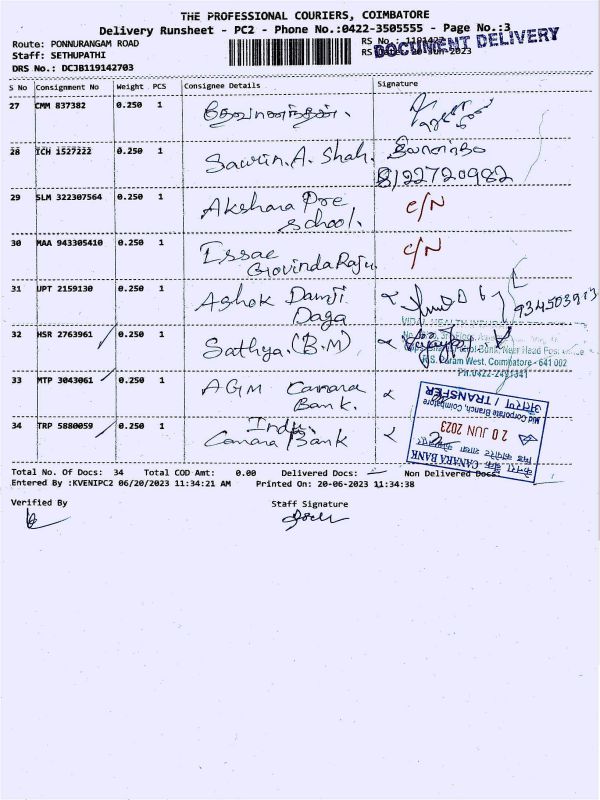 THE PROFESSIONAL COURIERS, COIMBATORE
Delivery Runsheet - PC2 - Phone No.:0422-3505555 - Page No.:3
Route: PONNURANGAM ROAD
RS No.:
Staff: SETHUPATHI
20-Jun-2023
DOCUMENT DELIVERY
DRS No.: DCJB119142703
S No Consignment No Weight PCS Consignee Details Signature
27 CMM 837382 0.250 1
28 ICH 1527222 0.250 1 Sawrin.A. Shah.
8122720982
29 SLM 322307564 0.250 1 Akshara Pre C/N
School.
30 MAA 943305410 0.250 1 Essae C/N
Govinda Raju
31 UPT 2159130 0.250 1 Ashok Damji
Daga
32 HSR 2763961 0.250 1 Sathya.(B.M)
R.S. Puram West, Coimbatore - 641 002
Ph:0422-2491341
33 MTP 3043061 0.250 1 AGM Canara
Bank.
अंतरण / TRANSFER
Mid Corporate Branch, Coimbatore
20 JUN 2023
केनरा बैंक CANARA BANK
34 TRP 5880059 0.250 1 Indu.
Canara Bank
Total No. Of Docs: 34 Total COD Amt: 0.00 Delivered Docs: Non Delivered Docs:
Entered By :KVENIPC2 06/20/2023 11:34:21 AM Printed On: 20-06-2023 11:34:38
Verified By Staff Signature